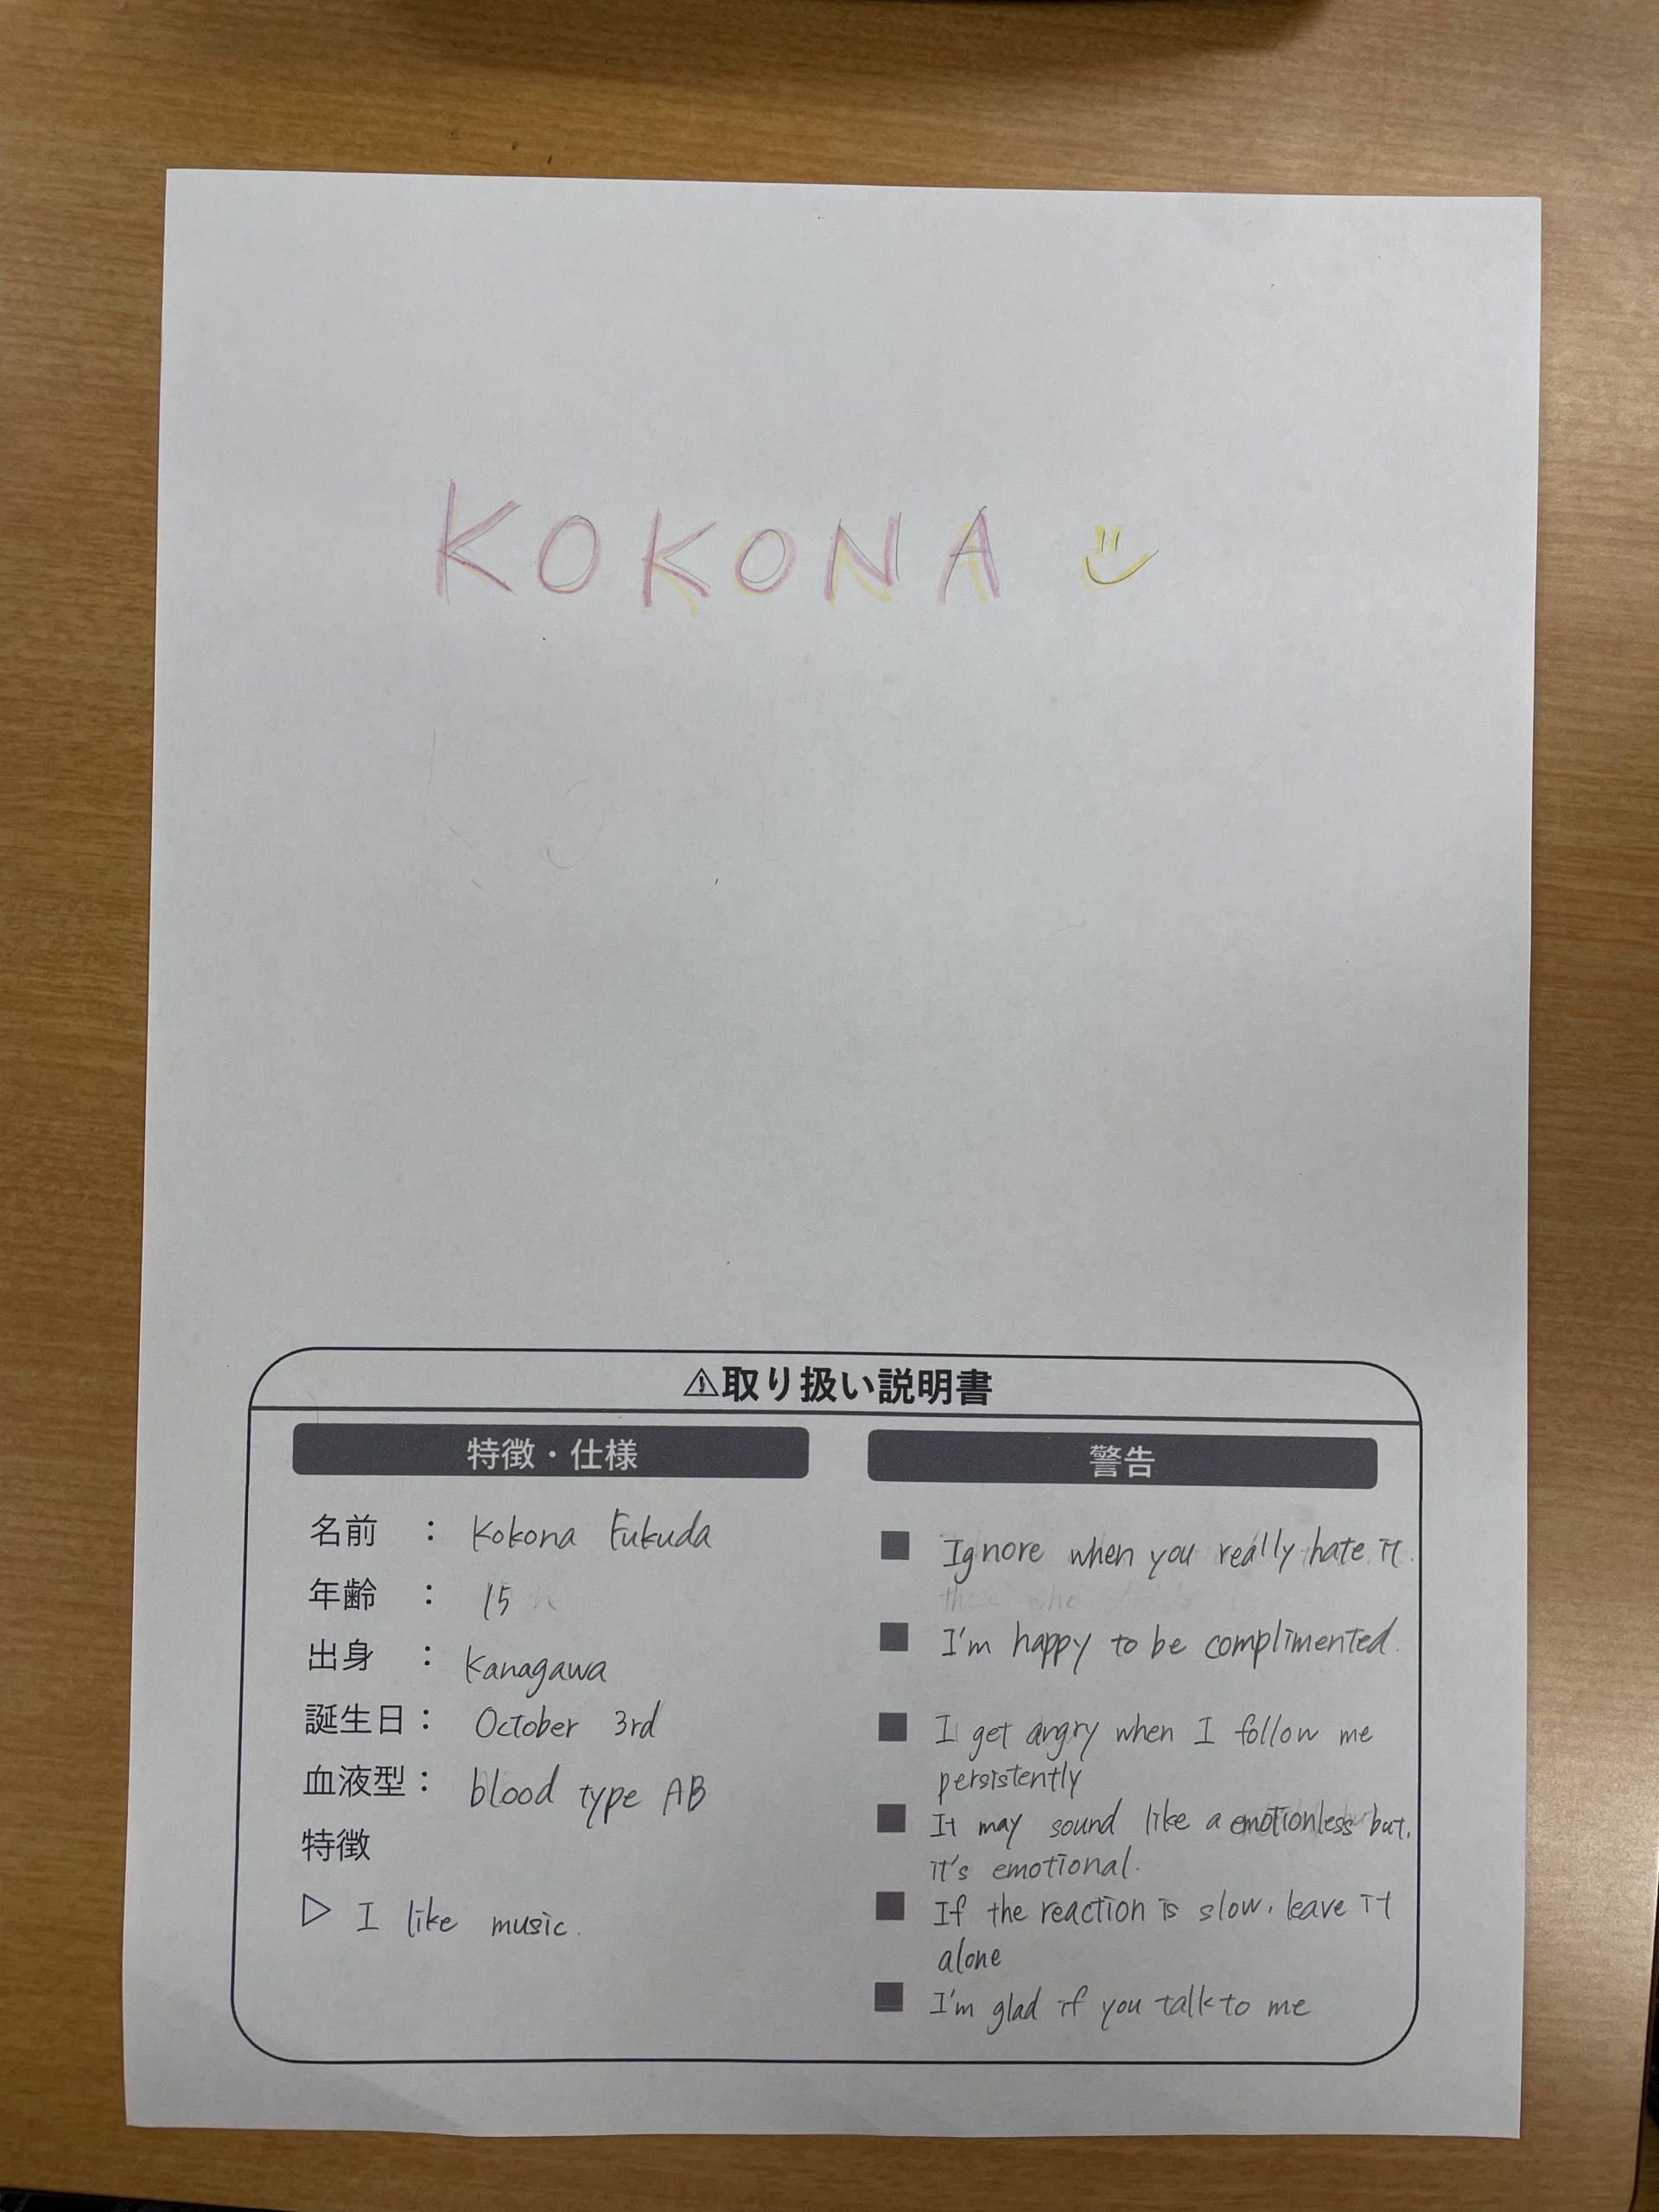 KOKONA
⚠取り扱い説明書
特徴・仕様
名前 : Kokona Fukuda
年齢 : 15
出身 : Kanagawa
誕生日 : October 3rd
血液型 : blood type AB
特徴
▷ I like music.
警告
■ Ignore when you really hate it.
■ I'm happy to be complimented.
■ I get angry when I follow me
persistently
■ It may sound like a emotionless but,
it's emotional.
■ If the reaction is slow, leave it
alone
■ I'm glad if you talk to me